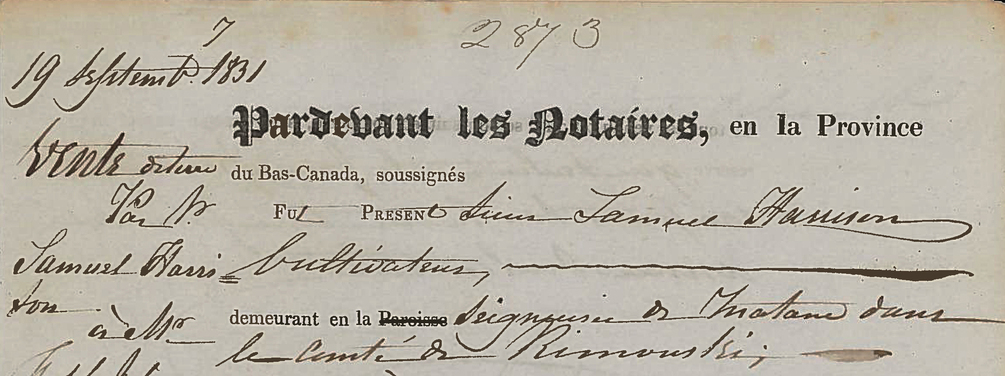 7
2873
19 Septemb. 1831
Pardevant les Notaires, en la Province
Vente de terre
du Bas-Canada, soussignés
Par Mr
Fut Present Sieur Samuel Harrison
Samuel Harri=
Cultivateur,
son
à Mr
demeurant en la Paroisse Seigneurie de Matane dans
le Comté de Rimouski;